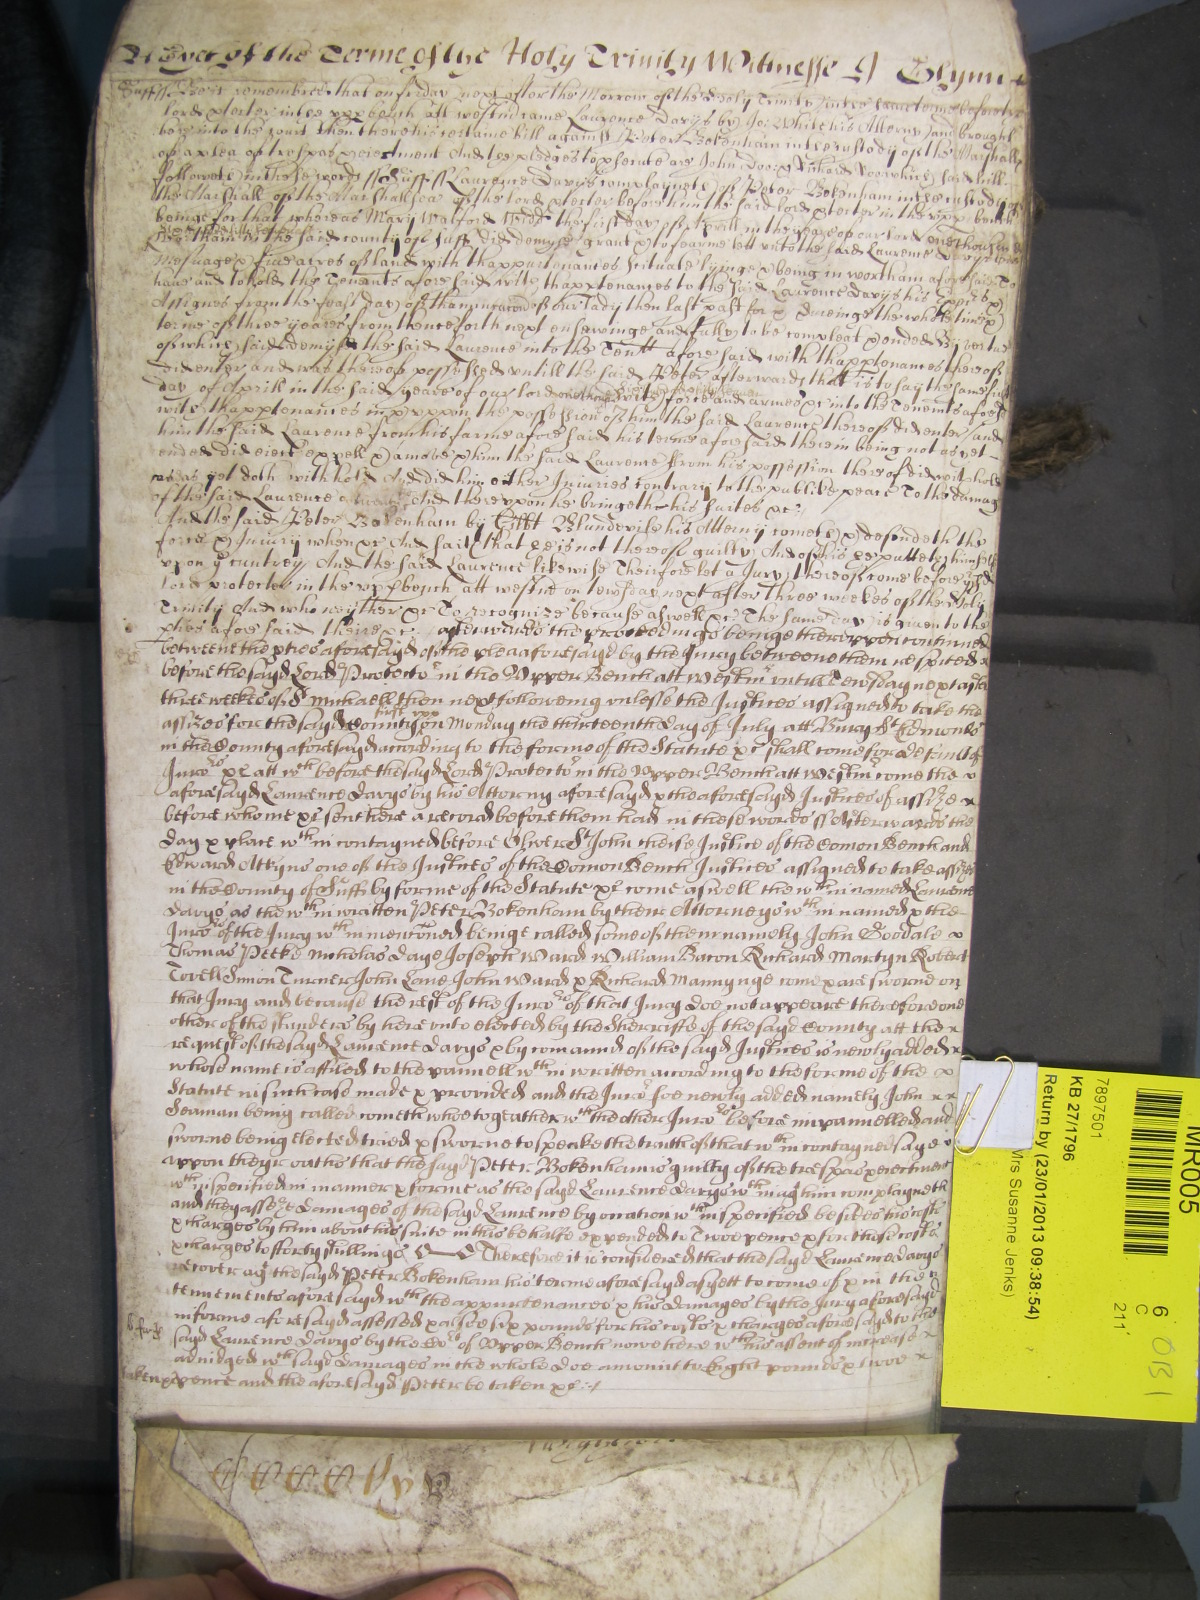 As yet of the Terme of the Holy Trinity Wittnesse J Glynn
Suff ss Be it remembred that on friday next after the Morrow of the Holy Trinity in this same terme before the
lord ptector in the upp bench att westm came Laurence Davys by Jo: White his Attorny and brought
here into the court then there his certaine bill against Peter Bokenham in the custody of the Marshall
of a plea of trespas & ejectment And are pledges to psecute are John Doo & Richard Roo which said bill
followeth in these words ss Suff ss Laurence Davys complayneth of Peter Bokenham in the custody of
the Marshall of the Marshallsea of the lord ptector before him the said lord ptector in the upp bench
beinge for that whereas Mary Walford the first day of Aprill in the yeare of our lord one thousand
in the said county of Suff did demyse grant & to fearme lett unto the said Laurence Davys one
Messuage & five acres of land with thappurtenances scituate lyinge & being in wortham aforesaid To
have and to hold the Tenements aforesaid with thapptenances to the said Laurence Davys his &
Assignes from the feast day of thannunciacon of our Lady then last past for & dureinge the whole time &
terme of three yeares from thence forth next ensewinge and fully to be compleat & ended By vertue
of which said demyse the said Laurence into the Tents aforesaid with thapptenances thereof
did enter and was thereof possessed untill the said Peter afterwards that is to say the same first
day of Aprill in the said yeare of our lord with force and armes &c into the Tenemts aforesd
with thapptenances in & uppon the possession of him the said Laurence thereof did enter and
him the said Laurence from his farme aforesaid his terme aforesaid therein being not as yet
ended did eject expell & amove & him the said Laurence from his possession thereof did withhold
and as yet doth withhold And did him other Injuries contrary to the publike peace To the damag
of the said Laurence And thereupon he bringeth his suite &c
And the said Peter Bokenham by Gilbt Blundevile his Attorny cometh & defendeth the
force & Injury when &c And saith that he is not thereof guilty And of this he putteth himselfe
upon ye cuntrey And the said Laurence likewise Therfore let a Jury thereof come before the
lord protector in the upp bench att westm on tewsday next after three weekes of the Holy
Trinity And who neyther &c To recognize because aswell &c The same day is given to the
pties aforesaid there &c afterwards the proceedings beinge thereuppon continued
betweene the pties aforesayd of the plea aforesayd by the Jury betweene them respited &
before the sayd Lord Protector in the Upper Bench att westm untill Tewsday next after
three weekes of St Michaell then next followeing unlesse the Justices assigned to take the
assizes for the sayd County first upp on Monday the thirteenth day of July att Bury St Edmonds
in the County aforesayd according to the forme of the Statute &c shall come for default of
Juro:rs &c att wch before the sayd Lord Protector in the Upper Bench att westm come the
aforesayd Laurence Davys by his Attorny aforesayd & the aforesayd Justices of assize &
before whome &c sent here a record before them had in these words ss afterwards the
day & place wthin contayned before Oliver St John cheife Justice of the Comon Bench and
Edward Atkyns one of the Justices of the Comon Bench Justices assigned to take assizes
in the County of Suff by forme of the Statute &c come aswell the wthin named Laurence
Davys as the wthin written Peter Bokenham by their Attorneys wthin named & the
Juro:rs of the Jury wthin mencioned beinge called some of them namely John Goodale &
Thomas Peeke Nicholas Daye Joseph Ward William Bacon Richard Martyn Robert
Tovell Simon Turner John Lane John Ward & Richard Mannynge come & are sworne on
that Jury and because the rest of the Juro:rs of that Jury doe not appeare therefore one
other of the standers by here unto elected by the Sherriffe of the sayd County att the &
request of the sayd Laurence Davys & by comaund of the sayd Justices is newly added &
whose name is affiled to the pannell wthin written according to the forme of the
Statute in such case made & provided and the Juror soe newly added namely John
Seaman being called cometh whoe togeather wth the other Juro:rs before impannelled and
sworne being elected tried & sworne to speake the truth of that wthin contayned saye
uppon theyr oathes that the sayd Peter Bokenham is guilty of the trespas & ejectment
wthin specified in manner & forme as the sayd Laurence Davys wthin agt him complayneth
and they assesse damages of the sayd Laurence by occation wthin specified besides his costs
& charges by him about his suite in this behalfe expended to Twoe pence & for those costs
& charges to forty shillings Therefore it is considered that the sayd Laurence Davys
recover agt the sayd Peter Bokenham his terme aforesayd as yett to come of & in the
tennements aforesayd wth the appurtenances & his damages by the Jury aforesayd
in forme aforesayd assessed & alsoe six pounds for his costs & charges aforesayd to the
sayd Laurence Davys by the Cort of Upper Bench nowe here wth his assent of increase &
adjudged wch sayd damages in the whole doe amount to Eight pounds & twoe
taken pence and the aforesayd Peter be taken &c
MR005
7897501
KB 27/1796
Return by (23/01/2013 09:38:54)
Mrs Susanne Jenks)
6
C
211
OB1